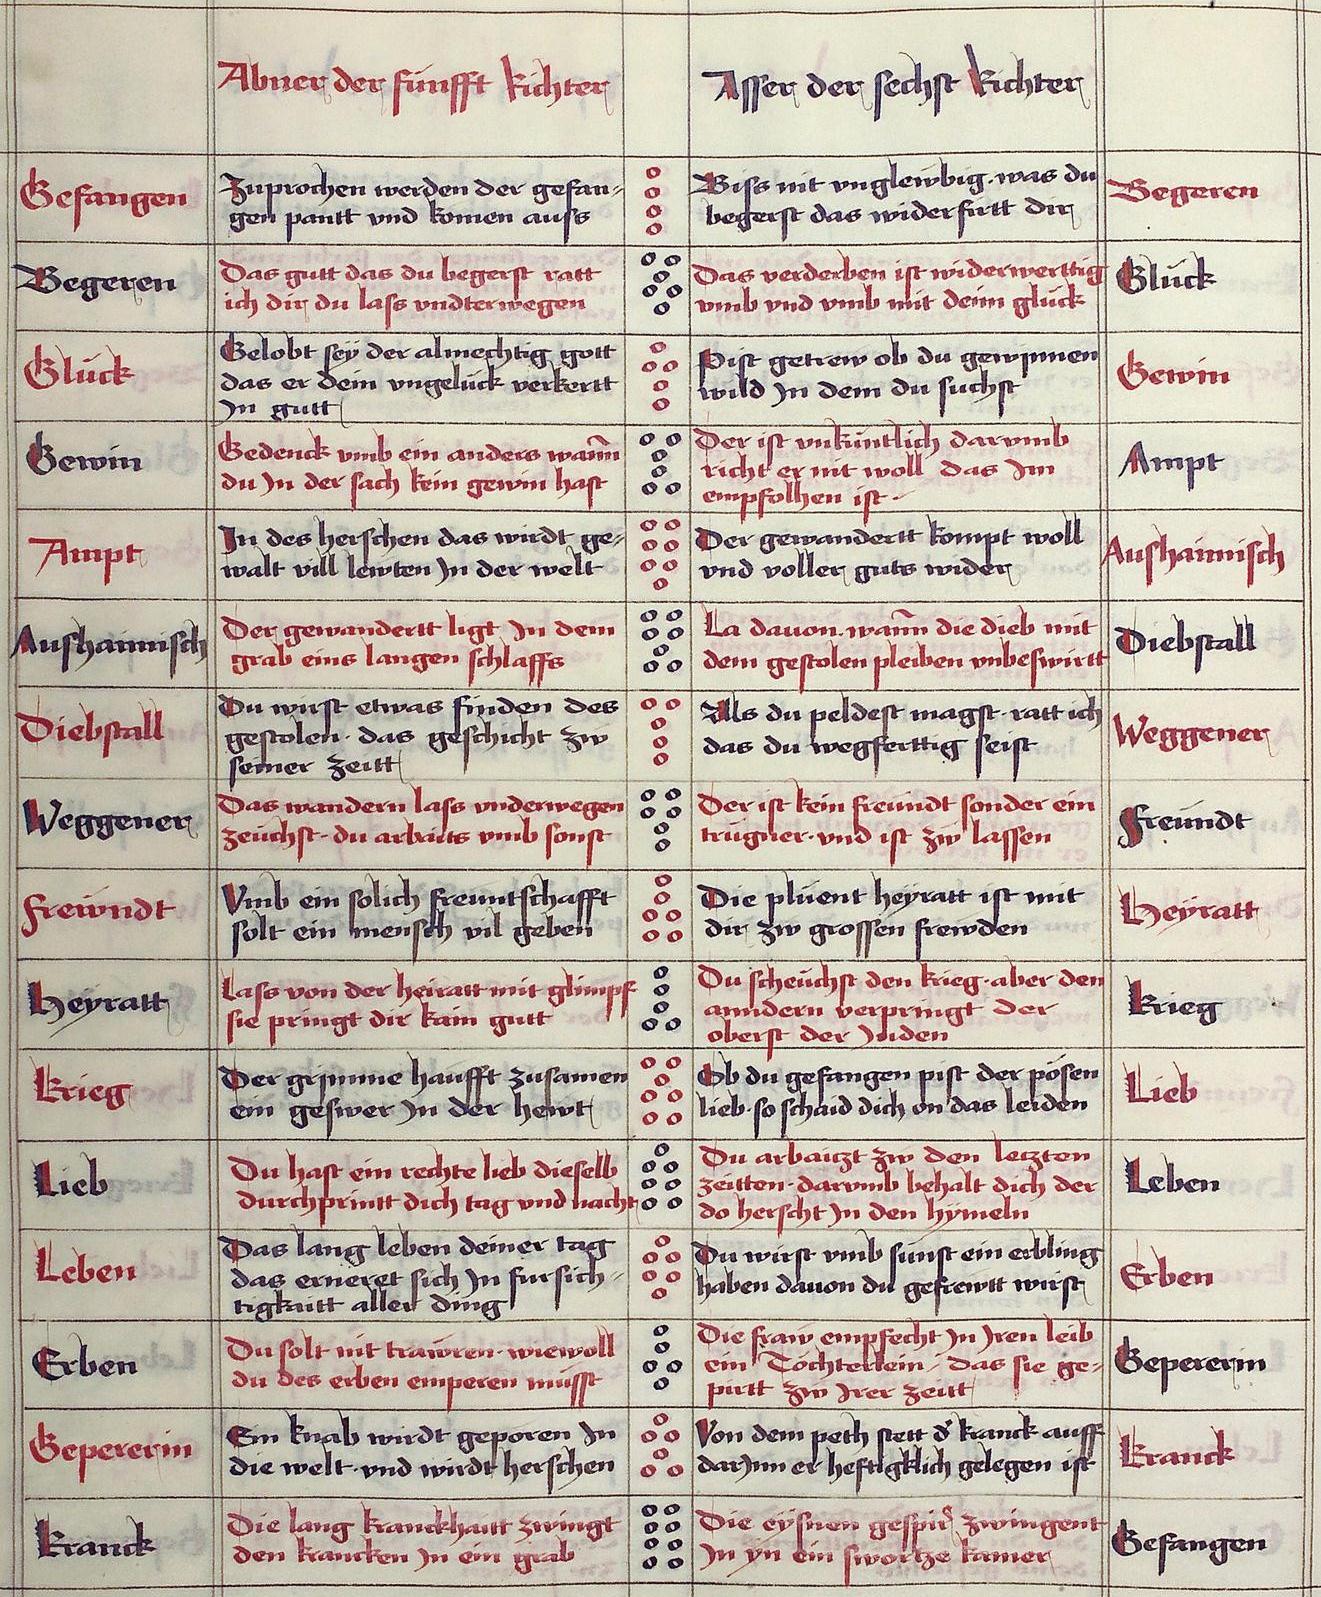 Abner der fünfft Richter
Asser der sechst Richter
Gefangen
Zuprochen werden der gefan-
gen pantt vnd komen auss
Biss nit vnglewbig. was du
begerst das widerfirtt dir
Begeren
Begeren
Das gutt das du begerst ratt
ich dir du lass vndterwegen
Das verderben ist widerwerttig
vmb vnd vmb mit deim glück
Glück
Glück
Gelobt seÿ der almechtig gott
das er dein vngelück verkertt
Jn gutt
Pist getrew ob du gewynnen
wild Jn dem du suchst
Gewin
Gewin
Gedenck vmb ein anders wann̄
du Jn der sach kein gewin hast
Der ist vnküntlich darvmb
richt er nit woll das Jm
empfolhen ist
Ampt
Ampt
Jn des herschen das wirdt ge-
walt vill lewten Jn der welt
Der gewandertt kompt woll
vnd voller guts wider
Aushaimisch
Aushaimisch
Der gewandertt ligt Jn dem
grab eins langen schlaffs
La dauon. wann̄ die dieb mit
dem gestolen pleiben vnbeswirtt
Diebstall
Diebstall
Du wirst etwas finden des
gestolen. das geschicht zw
seiner zeitt
Als du peldest magst. ratt ich
das du wegferttig seist
Weggener
Weggener
Das wandern lass vnderwegen
zeuchst. du arbaits vmb sonst
Der ist kein freündt sonder ein
trügner. vnd ist zw lassen
Freündt
Frewndt
Vmb ein solich freuntschafft
solt ein mensch vil geben
Die plüent heÿratt ist mit
dir zw grossen frewden
Heÿratt
Heÿratt
Lass von der heiratt mit glimpf
sie pringt dir kain gutt
Du scheüchst den krieg. aber den
anndern verpringt der
oberst der Juden
Krieg
Krieg
Der grymme haufft zusamen
ein geswer Jn der hewt
Ob du gefangen pist der pösen
lieb. so schaid dich on das leiden
Lieb
Lieb
Du hast ein rechte lieb dieselb
durchprintt dich tag vnd nacht
Du arbaitzt zw den letzten
zeitten. darvmb behalt dich der
do herscht Jn den hÿmeln
Leben
Leben
Das lang leben deiner tag
das erneret sich Jn fursich-
tigkaitt aller ding
Du wirst vmb sünst ein erbling
haben dauon du gefrewtt wirst
Erben
Erben
Du solt nit trawren. wiewoll
du des erben emperen müsst
Die fraw empfecht Jn Jren leib
ein Töchterlein. das sie ge-
pirtt zw Jrer zeitt
Gepererin
Gepererin
Ein knab wirdt geporen Jn
die welt. vnd wirdt herschen
Von dem peth stett d' kranck auff
darJnn er hefftigklich gelegen ist
Kranck
Kranck
Die lang kranckhaitt zwingt
den krancken Jn ein grab
Die eÿsnen zwingent
Jn ÿn ein swortze kamer
Gefangen